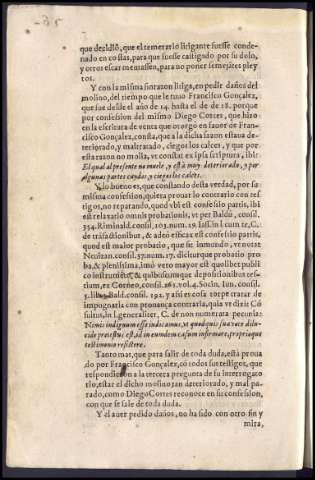 que decidiò, que el temerario litigante fuesse conde-
nado en costas, para que fuesse castigado por su dolo,
y otros escarmentassen, para no poner semejãtes pley
tos.
Y con la misma sinrazon litiga, en pedir daños del
molino, del tiempo que le tuuo Francisco Gonçalez,
que fue desde el año de 14. hasta el de de 18. porque
por confession del mismo Diego Cortes, que hizo
en la escritura de venta que otorgò en fauor de Francis
co Gonçalez, consta, que a la dicha sazon estaua de-
teriorado, y maltratado, ciegos los calces, y que por
esta razon no molia, vt constat ex ipsa scriptura, ibi:
El qual al presente no muele, y està muy deteriorado, y por
algunas partes caydas, y ciegos los calces.
Y lo bueno es, que constando desta verdad, por sa
misma confession, quiera prouar lo contrario con tes-
tigos, no reparando, quod vbi est confessio partis, ibi
est relaxatio omnis probationis, vt per Baldũ, consil.
354. Riminald. consil. 103. num. 19. Iass. in l. cum te, C.
de trãsactionibus, & adeo efficax est confessio partis,
quod est maior probatio, que se in mundo, vt notat
Neuizan. consil. 57. num. 17. dicitur que probatio pro-
ba, & plenissima, imò vetro mayor est quolibet publi
co instrumẽto, & quibuscumque depositionibus tes-
tium, ex Corneo, consil. 262. vol. 4. Socin. Iun. consil.
5. libro. Bald. consil. 192. y assi es cosa torpe tratar de
impugnarla con prouança contraria, quia vt dixit Cõ
sultus, in l. generaliter, C. de non numerata pecunia:
Nimis indignum esse iudicamus, vt quod quis sua voce dilu-
cide protestus est, id in eumdem casum infirmare, proprioque
testimonio resistere.
Tanto mas, que para salir de toda duda, està proua
do por Francisco Gonçalez, cõ todos sus testigos, que
respondieron a la tercera pregunta de su interrogato
rio, estar el dicho molino tan deteriorado, y mal pa-
rado, como Diego Cortes reconoce en su confession,
con que se sale de toda duda.
Y el auer pedido daños, no ha sido con otro fin y
mira,